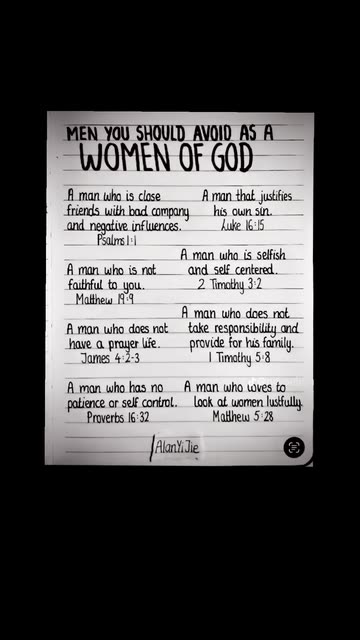 MEN YOU SHOULD AVOID AS A
WOMEN OF GOD
A man who is close
friends with bad company
and negative influences.
Psalms 1:1
A man that justifies
his own sin.
Luke 16:15
A man who is not
faithful to you.
Matthew 19:9
A man who is selfish
and self centered.
2 Timothy 3:2
A man who does not
have a prayer life.
James 4:2-3
A man who does not
take responsibility and
provide for his family.
1 Timothy 5:8
A man who has no
patience or self control.
Proverbs 16:32
A man who loves to
look at women lustfully.
Matthew 5:28
AlanYiJie